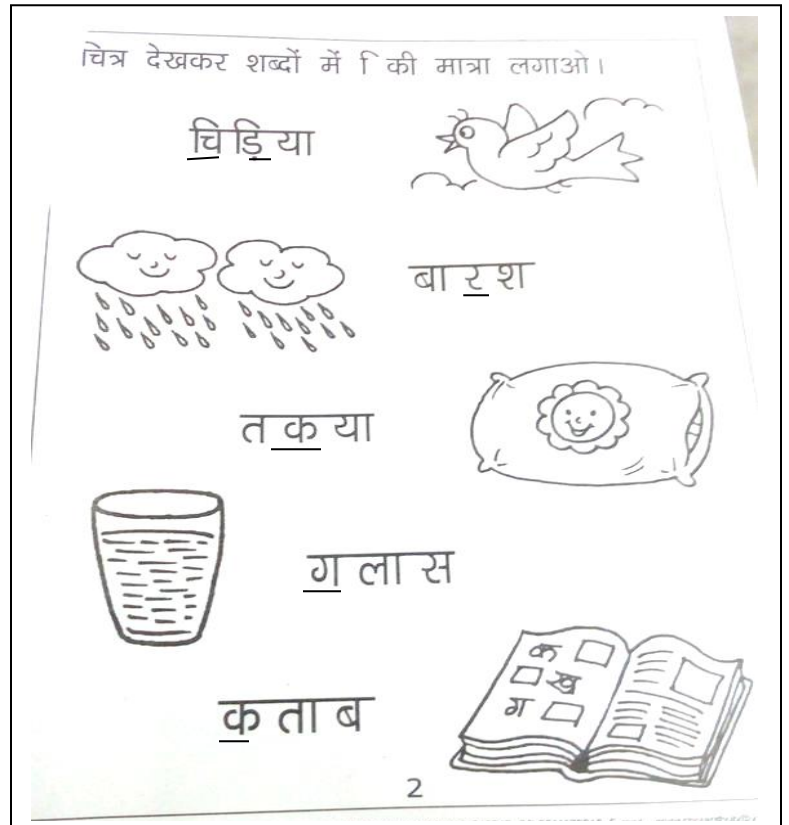 चित्र देखकर शब्दों में ि की मात्रा लगाओ।
चिड़िया
बारश
तकया
गलास
कताब
क
ख
ग
2